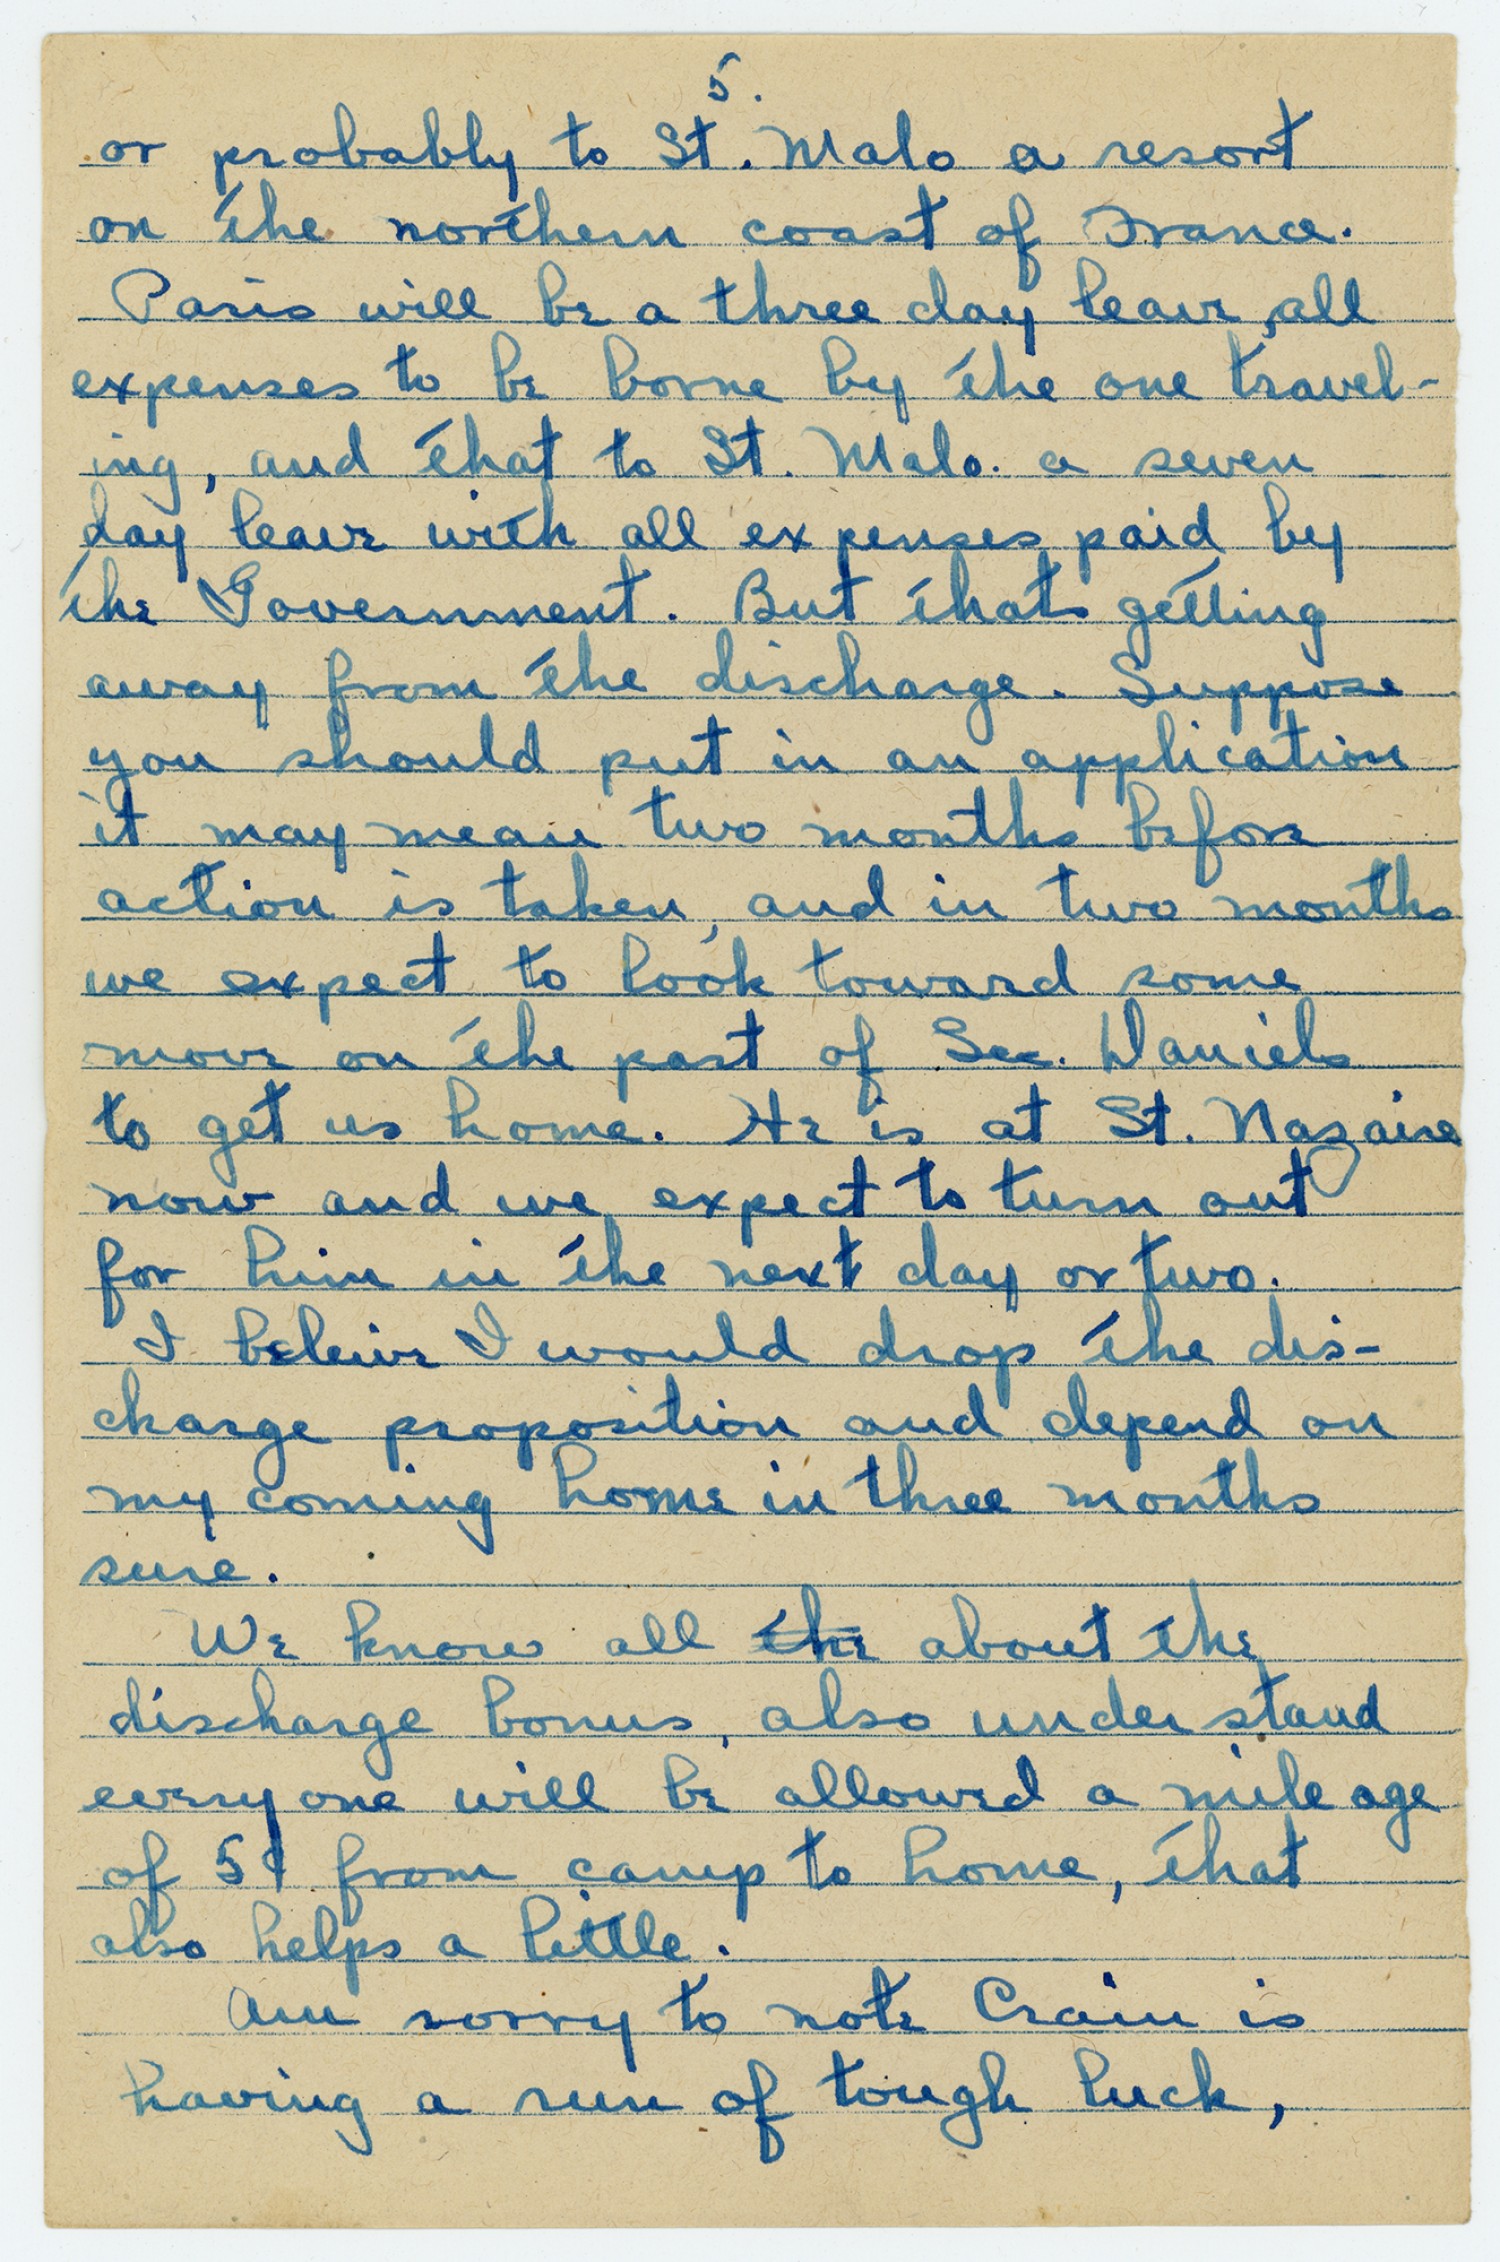 5.
or probably to St. Malo a resort
on the northern coast of France.
Paris will be a three day leave, all
expenses to be borne by the one travel-
ing, and that to St. Malo. a seven
day leave with all expenses paid by
the Government. But thats getting
away from the discharge. Suppose
you should put in an application
it may mean two months before
action is taken, and in two months
we expect to look toward some
move on the part of Sec. Daniels
to get us home. He is at St. Nazaire
now and we expect to turn out
for him in the next day or two.
I beleive I would drop the dis-
charge proposition and depend on
my coming home in three months
sure.
We know all the about the
discharge bonus, also understand
everyone will be allowed a mileage
of 5¢ from camp to home, that
also helps a little.
Am sorry to note Crain is
having a run of tough luck,